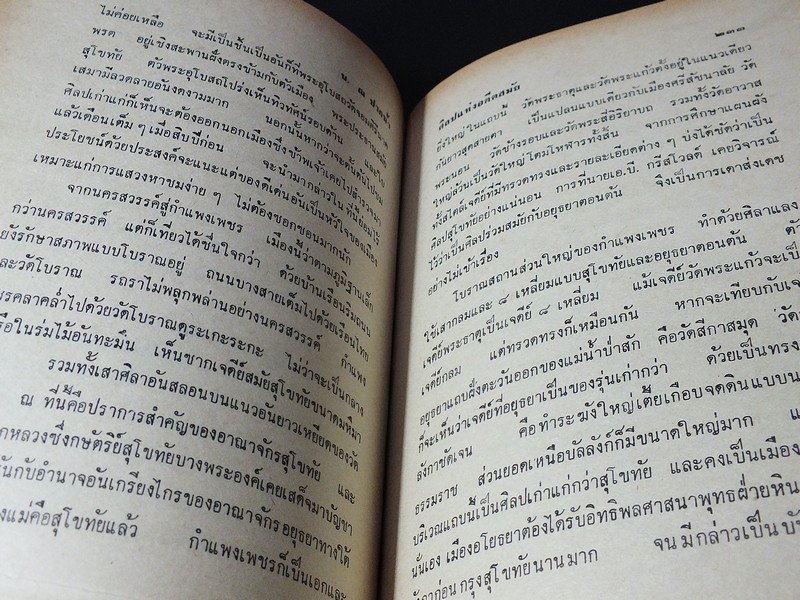 น. ณ ปากน้ำ
ไม่ค่อยเหลือ จะมีเป็นชิ้นเป็นอันก็ที่พระอุโบสถวัด
พรต อยู่เชิงสะพานฝั่งตรงข้ามกับตัวเมือง พระประธานสมัย
สุโขทัย ตัวพระอุโบสถโปร่งเห็นทิวทัศน์รอบด้าน และใบ
เสมามีลวดลายอันงดงามมาก นอกนั้นหากว่าจะดั้นด้นไปชม
ศิลปเก่าแก่ก็เห็นจะต้องออกนอกเมืองซึ่งข้าพเจ้าเคยไปสำรวจมา
แล้วเดือนเต็ม ๆ เมื่อสิบปีก่อน จะนำมากล่าวในที่นี้ย่อมไร้
ประโยชน์ด้วยประสงค์จะแนะแต่ของดีเด่นอันเป็นหัวใจของเมือง
เหมาะแก่การแสวงหาชมง่าย ๆ ไม่ต้องซอกซอนมากนัก
จากนครสวรรค์สู่กำแพงเพชร เมืองนี้ว่าตามภูมิฐานเล็ก
กว่านครสวรรค์ แต่ก็เที่ยวได้ชื่นใจกว่า ด้วยบ้านเรือนริมถนน
ยังรักษาสภาพแบบโบราณอยู่ ถนนบางสายเต็มไปด้วยเรือนไทย
และวัดโบราณ รถราไม่พลุกพล่านอย่างนครสวรรค์ กำแพง
เพชรคลาคล่ำไปด้วยวัดโบราณดูระเกะระกะ ไม่ว่าจะเป็นกลาง
หรือในร่มไม้อันทะมึน เห็นซากเจดีย์สมัยสุโขทัยขนาดมหึมา
รวมทั้งเสาศิลาอันสลอนบนแนวอันยาวเหยียดของวัด
ณ ที่นี้คือปราการสำคัญของอาณาจักรสุโขทัย และ
หลวงซึ่งกษัตริย์สุโขทัยบางพระองค์เคยเสด็จมาบัญชา
กับอำนาจอันเกรียงไกรของอาณาจักรอยุธยาทางใต้
แม่คือสุโขทัยแล้ว กำแพงเพชรก็เป็นเอกและ
ศิลปแห่งอดีตสมัย ๒๑๑
ยิ่งใหญ่ ในแถบนี้ วัดพระธาตุและวัดพระแก้วตั้งอยู่ในแนวเดียว
กันยาวสุดสายตา เป็นแปลนแบบเดียวกับเมืองศรีสัชนาลัย วัด
พระนอน วัดช้างรอบและวัดพระสี่อิริยาบถ รวมทั้งวัดอาวาส
ใหญ่ล้วนเป็นวัดใหญ่โตมโหฬารทั้งสิ้น จากการศึกษาแผนผัง
ทั้งสไตล์เจดีย์ที่มีทรวดทรงและรายละเอียดต่าง ๆ บ่งได้ชัดว่าเป็น
ศิลปสุโขทัยอย่างแน่นอน การที่นายเอ.บี. กรีสโวลด์ เคยวิจารณ์
ไว้ว่าเป็นศิลปร่วมสมัยกับอยุธยาตอนต้น จึงเป็นการเดาส่งเดช
อย่างไม่เข้าเรื่อง
โบราณสถานส่วนใหญ่ของกำแพงเพชร ทำด้วยศิลาแลง
ใช้เสากลมและ ๘ เหลี่ยมแบบสุโขทัยและอยุธยาตอนต้น
เจดีย์พระธาตุเป็นเจดีย์ ๘ เหลี่ยม แม้เจดีย์วัดพระแก้วจะเป็น
เจดีย์กลม แต่ทรวดทรงก็เหมือนกัน หากจะเทียบกับเจ
อยุธยาแถบฝั่งตะวันออกของแม่น้ำป่าสัก คือวัดสีกาสมุด วัด
ก็จะเห็นว่าเจดีย์ที่อยุธยาเป็นของรุ่นเก่ากว่า ด้วยเป็นทรง
ลังกาชัดเจน คือทำระฆังใหญ่เตี้ยเกือบจดดินแบบบน
ธรรมราช ส่วนยอดเหนือบัลลังก์ก็มีขนาดใหญ่มาก
บริเวณแถบนี้เป็นศิลปเก่าแก่กว่าสุโขทัย และคงเป็นเมือง
นั่นเอง เมืองอโยธยาต้องได้รับอิทธิพลศาสนาพุทธฝ่ายหิน
ก่อน กรุงสุโขทัยนานมาก จนมีกล่าวเป็น